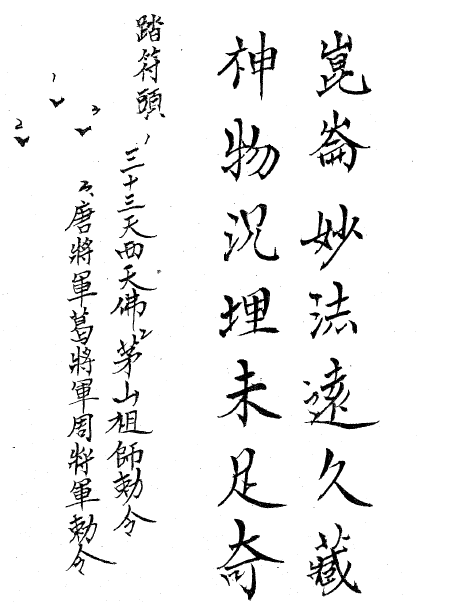 崑崙妙法遠久藏
神物沉埋未足奇
踏符頭
1
2
3
1、三十三天西天佛 2、茅山祖師勅令
3、唐將軍葛將軍周將軍勅令